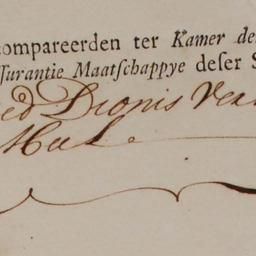 compareerden ter Kamer de
ſſurantie Maatſchappye deſer S
ed Dionis Ver